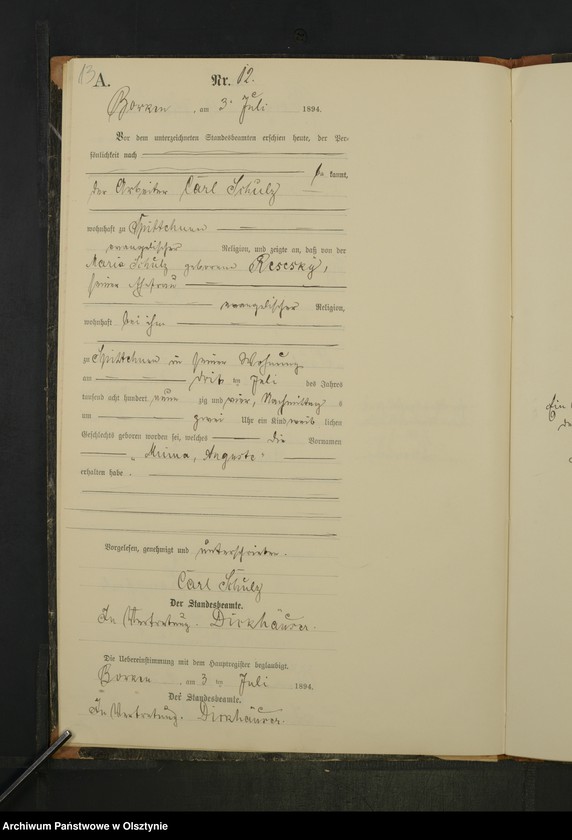 13 A. Nr. 12.
Borken, am 3 Juli 1894.
Vor dem unterzeichneten Standesbeamten erschien heute, der Per-
sönlichkeit nach
kannt,
der Arbeiter Carl Schulz
wohnhaft zu Spittehnen
evangelischer Religion, und zeigte an, daß von der
Maria Schulz geborene
seiner Ehefrau
evangelischer Religion,
wohnhaft bei ihm
zu Spittehnen in seiner Wohnung
am drit ten Juli des Jahres
tausend acht hundert neun zig und vier, Nachmittag s
um zwei Uhr ein Kind weib lichen
Geschlechts geboren worden sei, welches die Vornamen
„Minna, Auguste“
erhalten habe.
Vorgelesen, genehmigt und unterschrieben.
Carl Schulz
Der Standesbeamte.
In Vertretung. Dirkhäuser.
Die Uebereinstimmung mit dem Hauptregister beglaubigt.
Borken, am 3 ten Juli 1894.
Der Standesbeamte.
In Vertretung. Dirkhäuser.
Archiwum Państwowe w Olsztynie